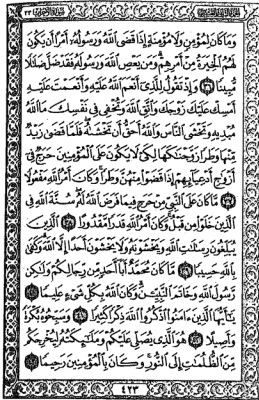 وَمَا كَانَ لِمُؤْمِنٍ وَلَا مُؤْمِنَةٍ إِذَا قَضَى اللَّهُ وَرَسُولُهُ أَمْرًا أَن يَكُونَ
لَهُمُ الْخِيَرَةُ مِنْ أَمْرِهِمْ وَمَن يَعْصِ اللَّهَ وَرَسُولَهُ فَقَدْ ضَلَّ ضَلَٰلًا
مُّبِينًا ٣٦ وَإِذْ تَقُولُ لِلَّذِي أَنْعَمَ اللَّهُ عَلَيْهِ وَأَنْعَمْتَ عَلَيْهِ
أَمْسِكْ عَلَيْكَ زَوْجَكَ وَاتَّقِ اللَّهَ وَتُخْفِي فِي نَفْسِكَ مَا اللَّهُ
مُبْدِيهِ وَتَخْشَى النَّاسَ وَاللَّهُ أَحَقُّ أَن تَخْشَىٰهُ فَلَمَّا قَضَىٰ زَيْدٌ
مِّنْهَا وَطَرًا زَوَّجْنَٰكَهَا لِكَيْ لَا يَكُونَ عَلَى الْمُؤْمِنِينَ حَرَجٌ فِي
أَزْوَٰجِ أَدْعِيَائِهِمْ إِذَا قَضَوْا مِنْهُنَّ وَطَرًا وَكَانَ أَمْرُ اللَّهِ مَفْعُولًا
٣٧ مَّا كَانَ عَلَى النَّبِيِّ مِنْ حَرَجٍ فِيمَا فَرَضَ اللَّهُ لَهُ سُنَّةَ اللَّهِ فِي
الَّذِينَ خَلَوْا مِن قَبْلُ وَكَانَ أَمْرُ اللَّهِ قَدَرًا مَّقْدُورًا ٣٨ الَّذِينَ
يُبَلِّغُونَ رِسَٰلَٰتِ اللَّهِ وَيَخْشَوْنَهُ وَلَا يَخْشَوْنَ أَحَدًا إِلَّا اللَّهَ وَكَفَىٰ
بِاللَّهِ حَسِيبًا ٣٩ مَّا كَانَ مُحَمَّدٌ أَبَا أَحَدٍ مِّن رِّجَالِكُمْ وَلَٰكِن
رَّسُولَ اللَّهِ وَخَاتَمَ النَّبِيِّينَ وَكَانَ اللَّهُ بِكُلِّ شَيْءٍ عَلِيمًا ٤٠
يَٰأَيُّهَا الَّذِينَ ءَامَنُوا اذْكُرُوا اللَّهَ ذِكْرًا كَثِيرًا ٤١ وَسَبِّحُوهُ بُكْرَةً
وَأَصِيلًا ٤٢ هُوَ الَّذِي يُصَلِّي عَلَيْكُمْ وَمَلَٰئِكَتُهُ لِيُخْرِجَكُم
مِّنَ الظُّلُمَٰتِ إِلَى النُّورِ وَكَانَ بِالْمُؤْمِنِينَ رَحِيمًا ٤٣
٤٢٣